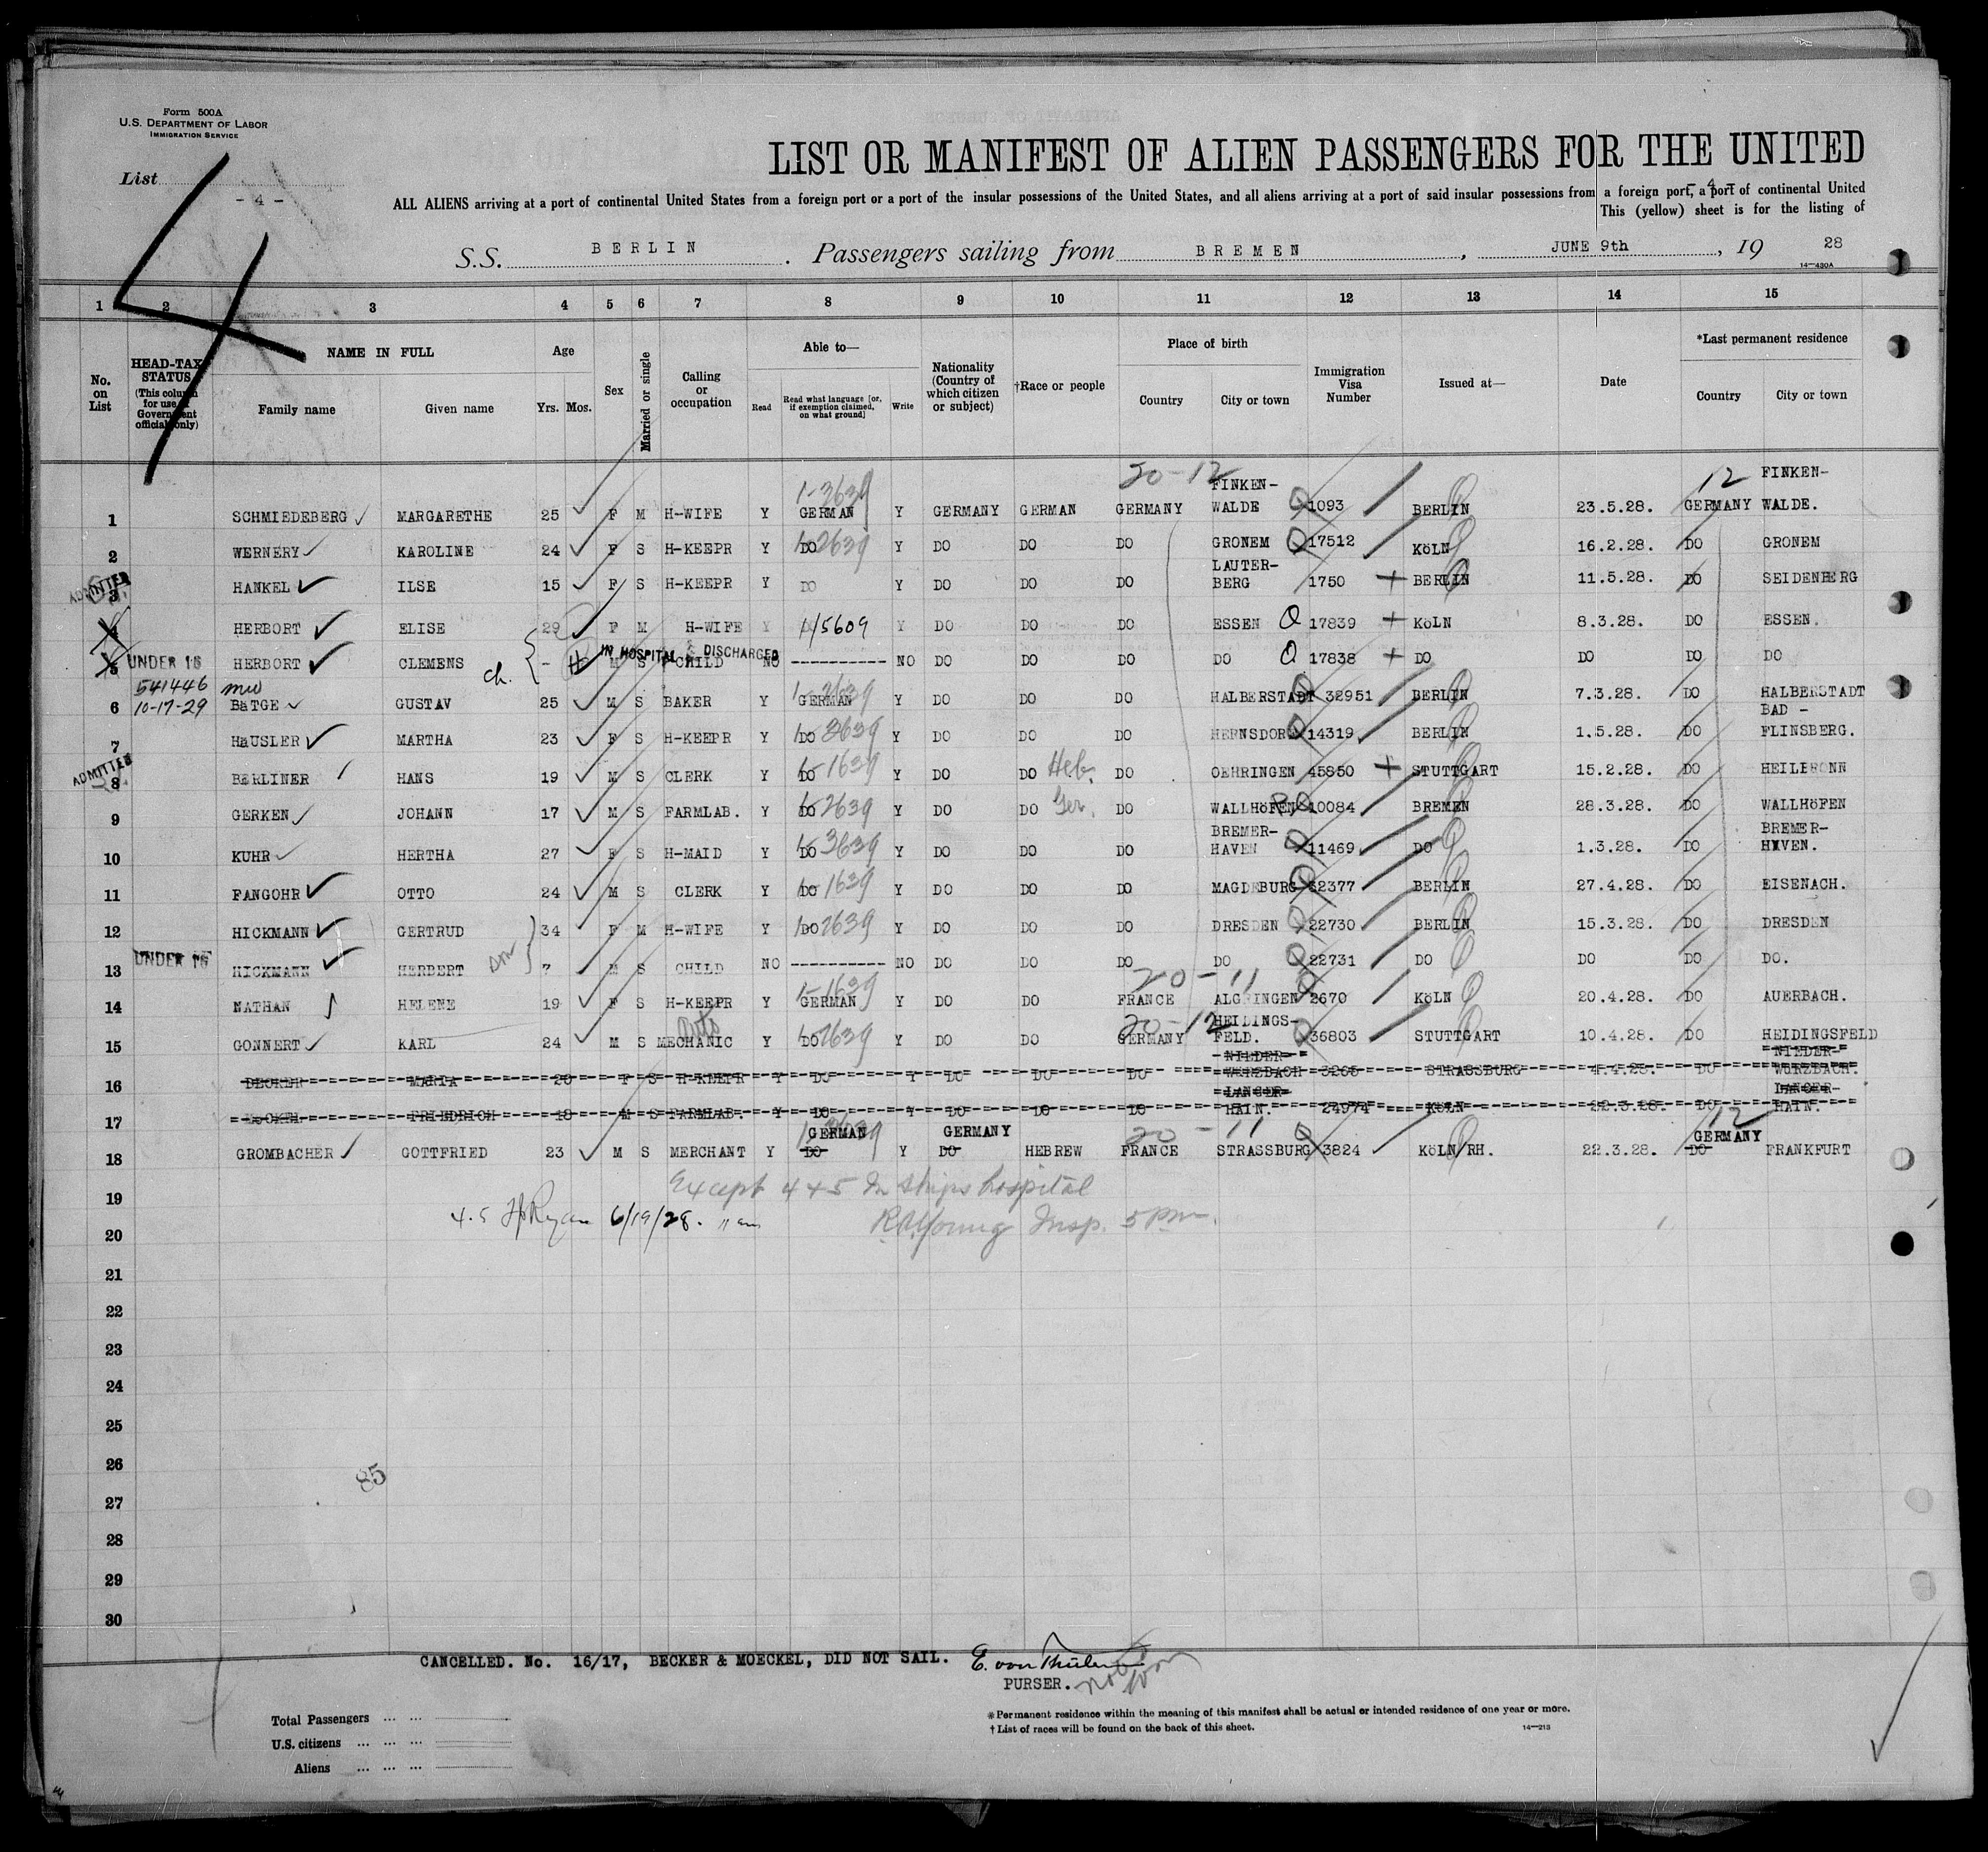 Form 500A
U.S. DEPARTMENT OF LABOR
IMMIGRATION SERVICE
List
- 4 -
4
LIST OR MANIFEST OF ALIEN PASSENGERS FOR THE UNITED
ALL ALIENS arriving at a port of continental United States from a foreign port or a port of the insular possessions of the United States, and all aliens arriving at a port of said insular possessions from a foreign port, a port of continental United
- 4 -
This (yellow) sheet is for the listing of
S.S. BERLIN . Passengers sailing from BREMEN , JUNE 9th , 19 28
14—430A
1 2 3 4 5 6 7 8 9 10 11 12 13 14 15
No. on List
HEAD-TAX STATUS (This column for use of Government officials only)
NAME IN FULL
Family name Given name
Age
Yrs. Mos.
Sex
Married or single
Calling or occupation
Able to—
Read Read what language [or, if exemption claimed, on what ground] Write
Nationality (Country of which citizen or subject)
†Race or people
Place of birth
Country City or town
Immigration Visa Number
Issued at—
Date
*Last permanent residence
Country City or town
20-12 FINKEN- 12 FINKEN-
1-3639
1 SCHMIEDEBERG MARGARETHE 25 F M H-WIFE Y GERMAN Y GERMANY GERMAN GERMANY WALDE 1093 BERLIN 23.5.28. GERMANY WALDE.
2 WERNERY KAROLINE 24 F S H-KEEPR Y DO 2639 Y DO DO DO GRONEM 17512 KöLN 16.2.28. DO GRONEM
LAUTER-
ADMITTED
3 HANKEL ILSE 15 F S H-KEEPR Y DO Y DO DO DO BERG 1750 BERLIN 11.5.28. DO SEIDENBERG
4 HERBORT ELISE 29 F M H-WIFE Y 15609 Y DO DO DO ESSEN 17839 KöLN 8.3.28. DO ESSEN.
IN HOSPITAL DISCHARGED
5 UNDER 16 HERBORT CLEMENS ch. - M S CHILD NO ---------- NO DO DO DO DO 17838 DO DO DO DO
541446
10-17-29
6 BäTGE GUSTAV 25 M S BAKER Y GERMAN Y DO DO DO HALBERSTADT 32951 BERLIN 7.3.28. DO HALBERSTADT
BAD -
7 HäUSLER MARTHA 23 F S H-KEEPR Y DO 3639 Y DO DO DO HERNSDORF 14319 BERLIN 1.5.28. DO FLINSBERG.
ADMITTED
8 BERLINER HANS 19 M S CLERK Y DO 1639 Y DO DO Heb. DO OEHRINGEN 45850 STUTTGART 15.2.28. DO HEILBRONN
9 GERKEN JOHANN 17 M S FARMLAB. Y DO 2639 Y DO DO Ger. DO WALLHöFEN 10084 BREMEN 28.3.28. DO WALLHöFEN
BREMER- BREMER-
10 KUHR HERTHA 27 F S H-MAID Y DO 3639 Y DO DO DO HAVEN 11469 DO 1.3.28. DO HAVEN.
11 FANGOHR OTTO 24 M S CLERK Y DO 1639 Y DO DO DO MAGDEBURG 32377 BERLIN 27.4.28. DO EISENACH.
12 HICKMANN GERTRUD 34 F M H-WIFE Y DO 2639 Y DO DO DO DRESDEN 22730 BERLIN 15.3.28. DO DRESDEN
13 UNDER 16 HICKMANN HERBERT son 7 M S CHILD NO ---------- NO DO DO DO DO 22731 DO DO DO DO.
20-11
1-1639
14 NATHAN HELENE 19 F S H-KEEPR Y GERMAN Y DO DO FRANCE ALGRINGEN 2670 KöLN 20.4.28. DO AUERBACH.
20-12 HEIDINGS-
Auto
15 GONNERT KARL 24 M S MECHANIC Y DO 2639 Y DO DO GERMANY FELD. 36803 STUTTGART 10.4.28. DO HEIDINGSFELD
NIEDER- NIEDER-
16 BECKER MARIA 20 F S H-KEEPR Y DO Y DO DO DO WURZBACH 3265 STRASSBURG 4.4.28. DO WURZBACH.
LANGER- LANGER-
17 FRIEDRICH 18 M S FARMLAB. Y DO Y DO DO DO HAIN. 24974 KöLN 22.3.28. DO HAIN.
GERMAN GERMANY 20-11 12 GERMANY
18 GROMBACHER GOTTFRIED 23 M S MERCHANT Y DO Y DO HEBREW FRANCE STRASSBURG 3824 KöLN/RH. 22.3.28. DO FRANKFURT
19 Except 4+5 In ships hospital
4.5 Ryan 6/19/28. 11 am R.R.Young Insp. 5 Pm.
20
21
22
23
24
25
26
85
27
28
29
30
CANCELLED. No. 16/17, BECKER & MOECKEL, DID NOT SAIL. E. von
PURSER.
Total Passengers ... ...
U.S. citizens ... ... ...
Aliens ... ... ...
*Permanent residence within the meaning of this manifest shall be actual or intended residence of one year or more.
†List of races will be found on the back of this sheet. 14—213